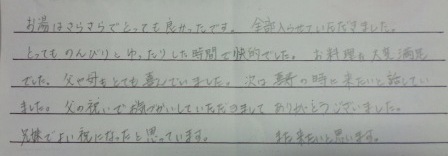 お湯はさらさらでとっても良かったです。 全部入らせていただきました。
とってものんびりとゆったりした時間で快的でした。 お料理も大変満足
でした。父や母もとても喜んでいました。次は の時に来たいと話してい
ました。父の祝いでお気づかいしていただきましてありがとうございました。
でよい祝になったと思っています。 また来たいと思います。